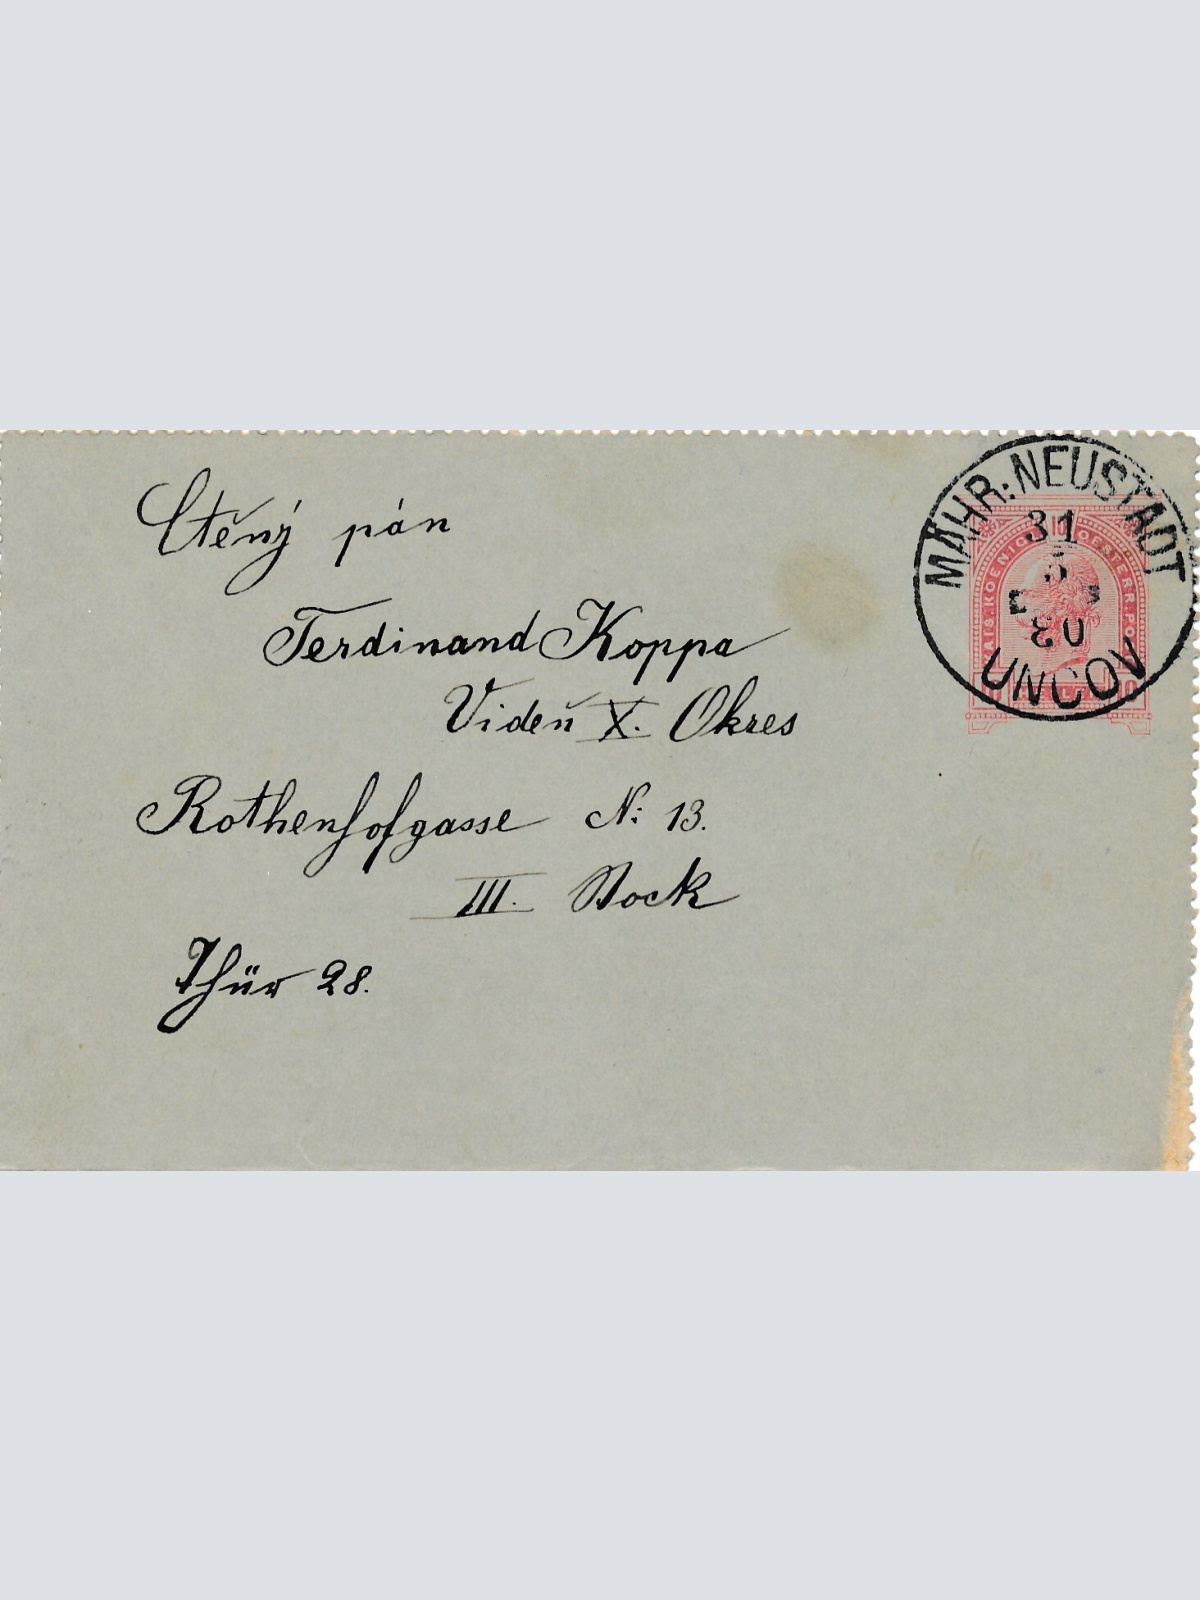 Ctěný pán
Ferdinand Koppa
Videň X. Okres
Rothenhofgasse N: 13.
III. Stock
Thür 28.
MÄHR: NEUSTADT
31
5
UNČOV
KAIS. KOENIGL. OESTERR. POST
10 10